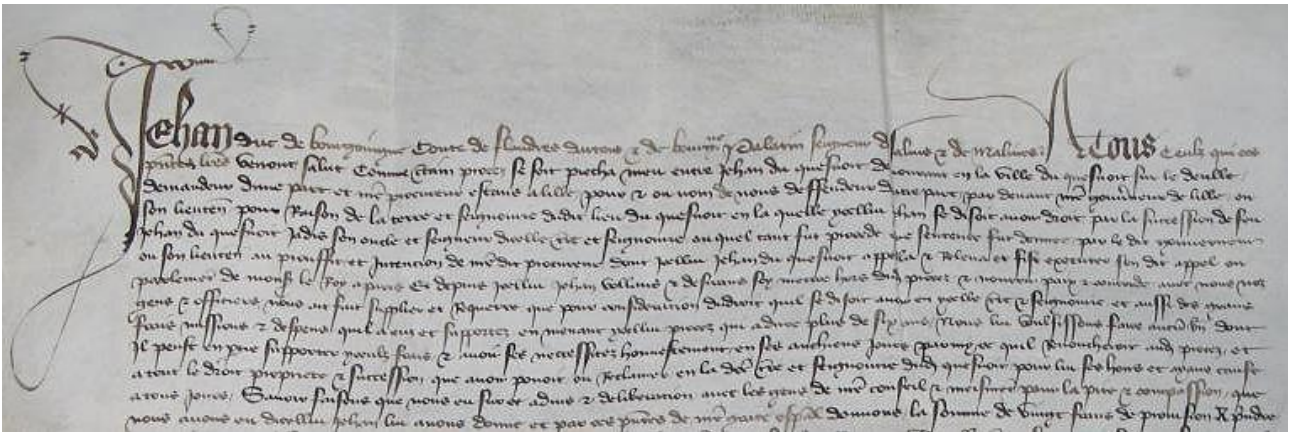 Jehan duc de bourgoingne Conte de flandres dartois et de bourgne palatin seigneur de salins et de malines A tous ceulx qui ces
lres verront salut Comme certain proces se soit pieca meu entre Jehan du quesnoit demourant en la ville du quesnoit sur le deulle
demandeur dune part et nre procureur estant a lille pour et ou nom de nous deffendeur dautre part par devant nre gouverneur de lille ou
son lieuten pour Raison de la terre et seignourie dudit lieu du quesnoit en la quelle ycellui Jehan se disoit avoir droit par la succession de feu
Jehan du quesnoit Jadis son oncle et seigneur dicelle tre et seignourie ou quel tant fut procede que sentence fut donnee par le dit gouverneur
ou son lieuten au prouffit et Intencion de nre dit procureur dont icellui Jehan du quesnoit appella et Releva et fist executer son dit appel ou
parlement de mons le Roy a paris Et depuis icellui Jehan et desirans soy mettre hors dud proces et nourrir paix et concorde avec nous noz
gens et officiers Nous ait fait supplier et Requerre que pour consideracion dudroit quil se disoit avoir en ycelle tre et seignourie et aussi des grans
frais missions et despens quil a eu et supportez en menant ycellui proces qui a dure plus de six ans Nous lui voulsissons faire aucun bn dont
Il peust en ptie supporter yceulx frais et avoir ses necessitez honnestement en ses anchiens Jours parmy ce quil Renoncheroit aud proces et
a tout le droit propriete et succession que avoir povoit ou Reclamer en la dte tre et seignourie dud quesnoit pour lui ses hoirs et ayans cause
a tous Jours Savoir faisons que nous eu sur ce advis et deliberacion avec les gens de nre conseil et pour la pitie et compassion que
nous avons eu dicellui Jehan lui avons donne et par ces pntes de nre grace espal donnons la somme de vingt frans de provision A prndre